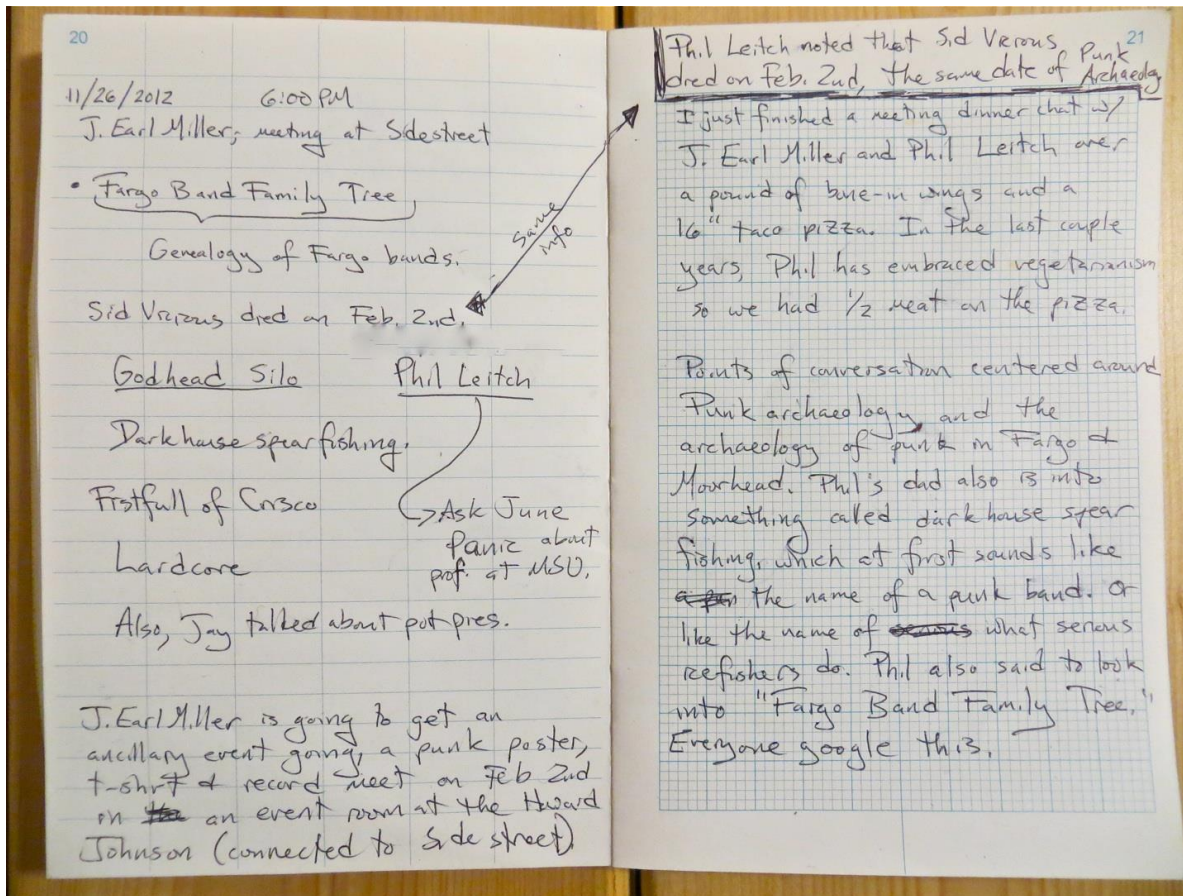 20
11/26/2012 6:00 PM
J. Earl Miller; meeting at Sidestreet
• Fargo Band Family Tree
Genealogy of Fargo bands.
Sid Vicious died on Feb. 2nd.
Same
info
Godhead Silo Phil Leitch
Darkhouse spearfishing.
Fistfull of Crisco
Hardcore
Ask June
Panic about
prof. at MSU.
Also, Jay talked about pot pies.
J. Earl Miller is going to get an
ancillary event going, a punk poster,
t-shirt & record meet on Feb 2nd
in an event room at the Howard
Johnson (connected to Side street)
21
Phil Leitch noted that Sid Vicious
died on Feb. 2nd, the same date of Punk
Archaeology
I just finished a meeting dinner chat w/
J. Earl Miller and Phil Leitch over
a pound of bone-in wings and a
16" taco pizza. In the last couple
years, Phil has embraced vegetarianism
so we had 1/2 meat on the pizza.
Points of conversation centered around
Punk archaeology and the
archaeology of punk in Fargo &
Moorhead. Phil's dad also is into
something called darkhouse spear
fishing, which at first sounds like
the name of a punk band. Or
like the name of what serious
icefishers do. Phil also said to look
into "Fargo Band Family Tree."
Everyone google this.